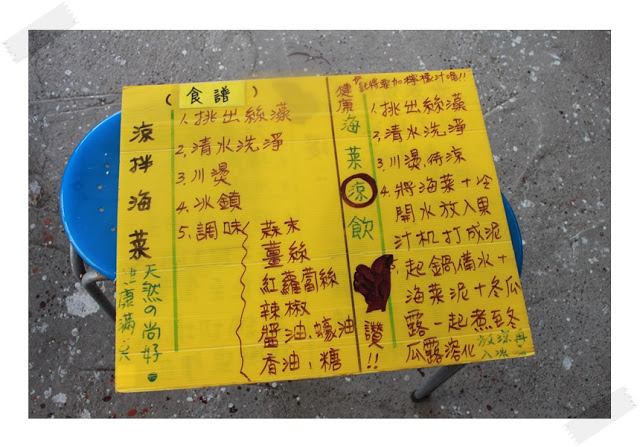 (食譜)
涼拌海菜
1. 挑出絲藻
2. 清水洗淨
3. 川燙
4. 冰鎮
5. 調味
蒜末
薑絲
紅蘿蔔絲
辣椒
醬油、蠔油
香油、糖
天然の尚好。
健康滿分
健康海菜涼飲
記得要加檸檬汁唷!!
1. 挑出絲藻
2. 清水洗淨
3. 川燙、待涼
4. 將海菜+冷
開水放入果
汁机打成泥
5. 起鍋備水+
海菜泥+冬瓜
露一起煮至冬
瓜露溶化
放涼再
入冰
讚!!